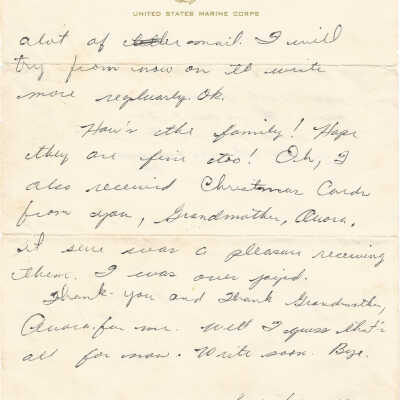 UNITED STATES MARINE CORPS
alot of mail. I will
try from now on to write
more regluarly. Ok.
How's the family! Hope
they are fine too! Oh, I
also received Christmas Cards
from you, Grandmother, Auora.
it sure was a pleasure receiving
them. I was over joyed.
Thank-you and Thank Grandmother,
Auora. for me. Well I guess that's
all for now. Write soon. Bye.